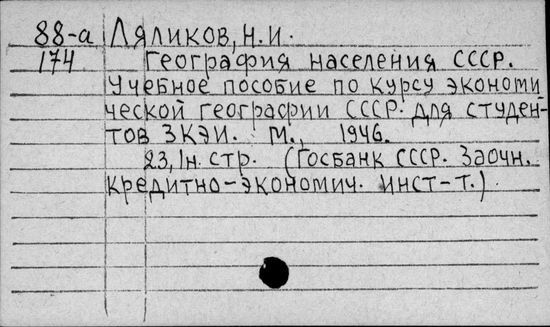 88-а Ляликов, Н.И.
174 География населения СССР.
Учебное пособие по курсу экономи
ческой географии СССР. для студен-
тов ЗКЭИ. М., 1946.
23, 1н. стр. (Госбанк СССР. Заочн.
кредитно-экономич. инст-т.)